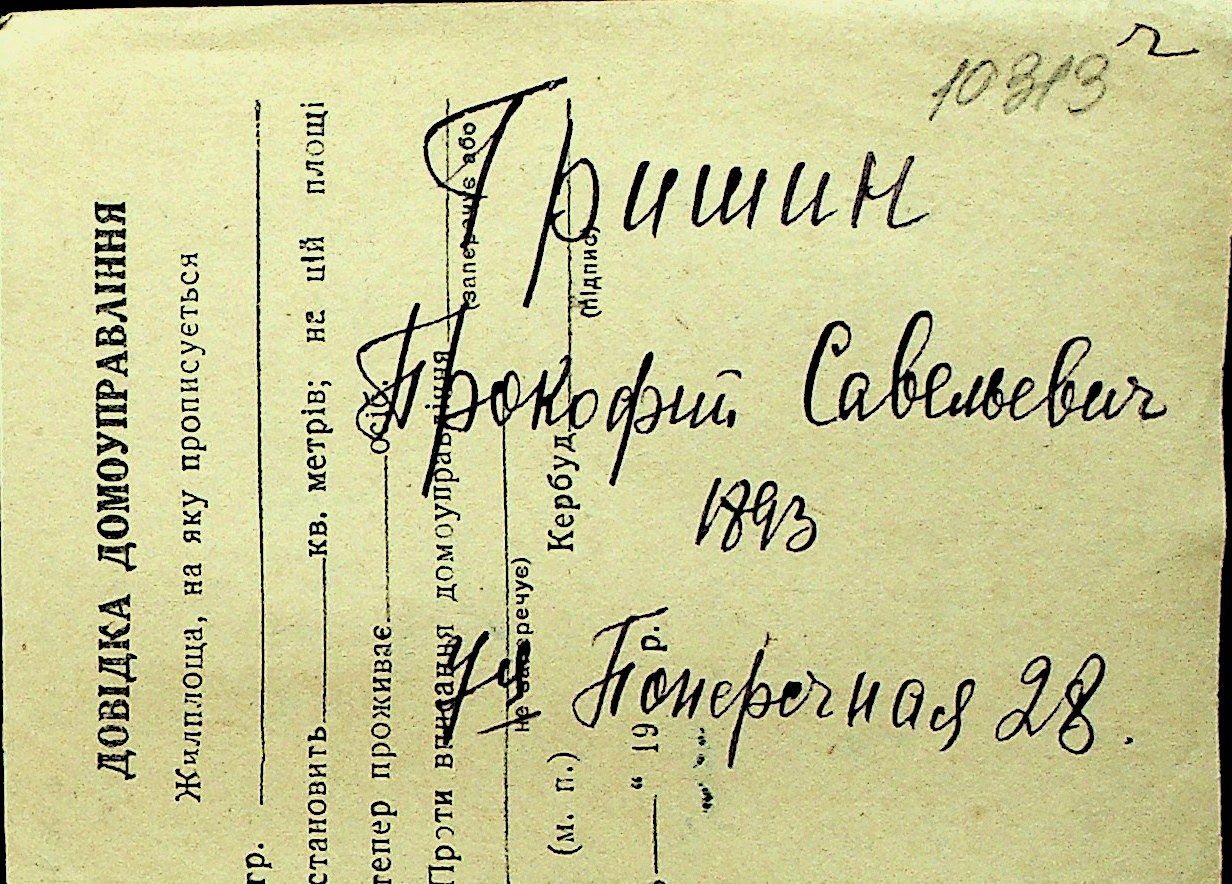 10313 г
Гришин
Прокофий Савельевич
1893
ул Поперечная 28.
ДОВІДКА ДОМОУПРАВЛІННЯ
Жилплоща, на яку прописується
гр.
становить кв. метрів; на цій площі
тепер проживає осіб.
Проти вписання домоуправління (заперечує або
не заперечує)
(м. п.) Кербуд (підпис)
“ 19 р.